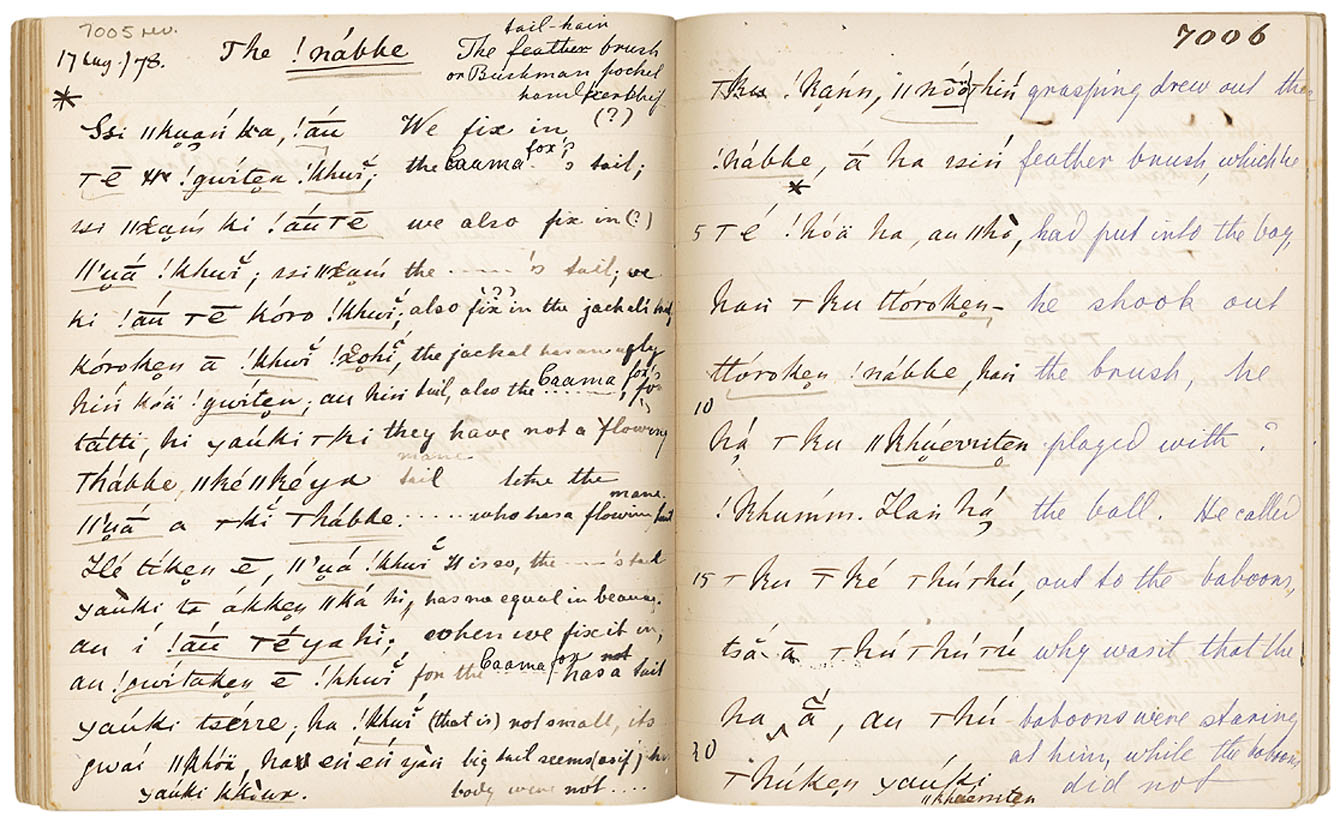 7005 rev.
17 Aug./78.
The !nábbe
tail-hair
The feather brush
or Bushman pocket
handkerchief
(?)
Ssi ǁkuań ka, !áu We fix in
tē !gwítẹn !khuĭ; the Caama fox's tail;
ssi ǁχam ki !áu tē we also fix in (?)
ǁ'uā !khuĭ; ssi ǁχam the ------'s tail; we
ki !áu tē kóro !khuĭ; also fix (?) in the jackal's tail,
kórokẹn ā !khuĭ !χohĭ, the jackal has an ugly
hiń kóä !gwítẹn; au hiń tail, also the Caama fox,
tátti, hi yaúki ki they have not a flowing
hábbe, ǁkéǁkéya mane tail like the
ǁ'uā a kĭ hábbe. ...... who has a flowing mane.
Hé tíkẹn ē, ǁ'uá !khuĭ It is so, the ------'s tail
yaúki ta ákkẹn ǁká hi, has no equal in beauty.
au í !áu téya hĭ; when we fix it in,
au !gwítakẹn ē !khuĭ for the Caama fox not has a tail
yaúki tsérre; ha !khuĭ (that is) not small, its
gwaí ǁkhóä, ha eń eń yań big tail seems (as if) his
yaúki body were not ....
7006
!kańń, grasping drew out the
!nábbe, ā ha ssiń feather brush, which he
5 té !hóä ha, au ǁhò, had put into the bag,
hań ku ttórokẹn- he shook out
ttórokẹn !nábbe, hań the brush, he
10
há ku ǁkhúerritẹn played with ?
!khumm. Hań há the ball. He called
15 ku ké hú hú, out to the baboons,
tsá ā hú hú ú why was it that the
ha ā, au hú baboons were staring
20 at him, while the baboons
húkẹn yaúki did not
ǁkhuerritẹn